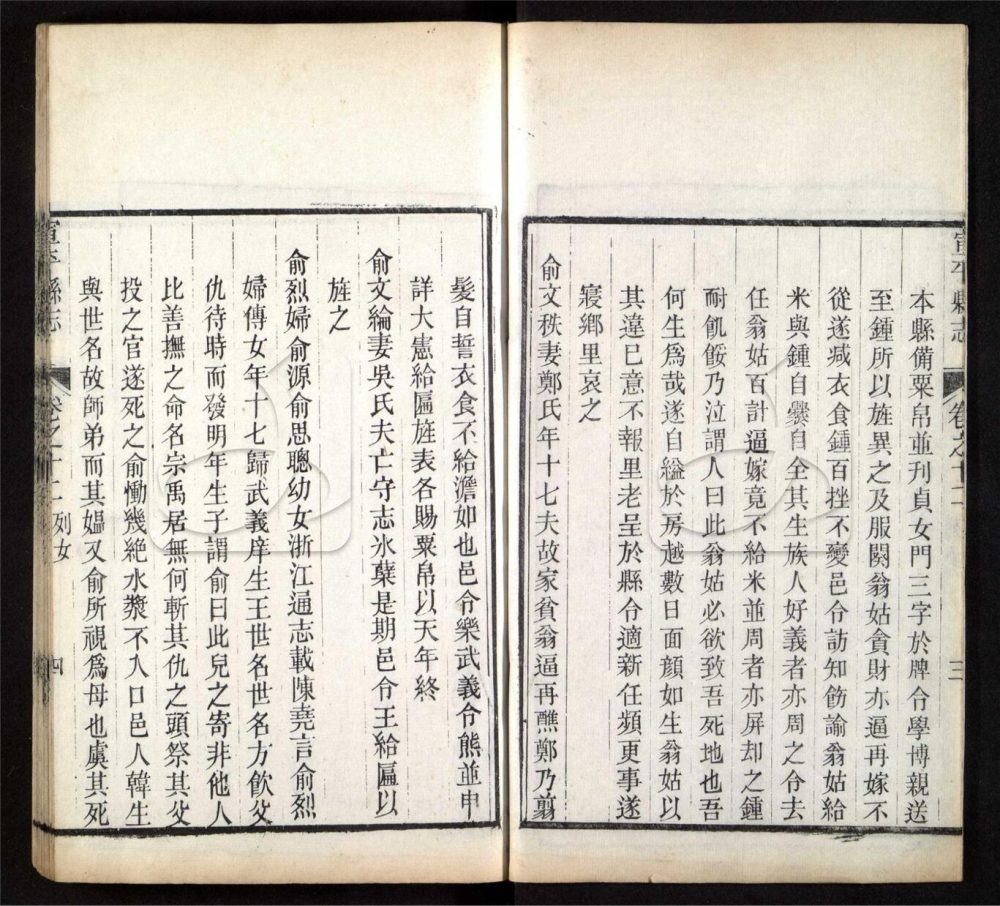 宣平縣志
卷之十二
三
本縣備粟帛並刋貞女門三字於牌令學博親送
至鍾所以旌異之及服闋翁姑貪財亦逼再嫁不
從遂减衣食鍾百挫不變邑令訪知飭諭翁姑給
米與鍾自爨自全其生族人好義者亦周之令去
任翁姑百計逼嫁竟不給米並周者亦屏却之鍾
耐飢餒乃泣謂人曰此翁姑必欲致吾死地也吾
何生爲哉遂自縊於房越數日面顔如生翁姑以
其違已意不報里老呈於縣令適新任頻更事遂
寢鄉里哀之
俞文秩妻鄭氏年十七夫故家貧翁逼再醮鄭乃剪
髮自誓衣食不給澹如也邑令樂武義令熊並申
詳大憲給匾旌表各賜粟帛以天年終
俞文綸妻吳氏夫亡守志氷蘗是期邑令王給匾以
旌之
俞烈婦俞源俞思聰幼女浙江通志載陳堯言俞烈
婦傳女年十七歸武義庠生王世名世名方飲父
仇待時而發明年生子謂俞曰此兒之寄非他人
比善撫之命名宗禹居無何斬其仇之頭祭其父
投之官遂死之俞慟幾絶水漿不入口邑人韓生
與世名故師弟而其嫗又俞所視爲母也虞其死
宣平縣志
卷之十二 列女
四